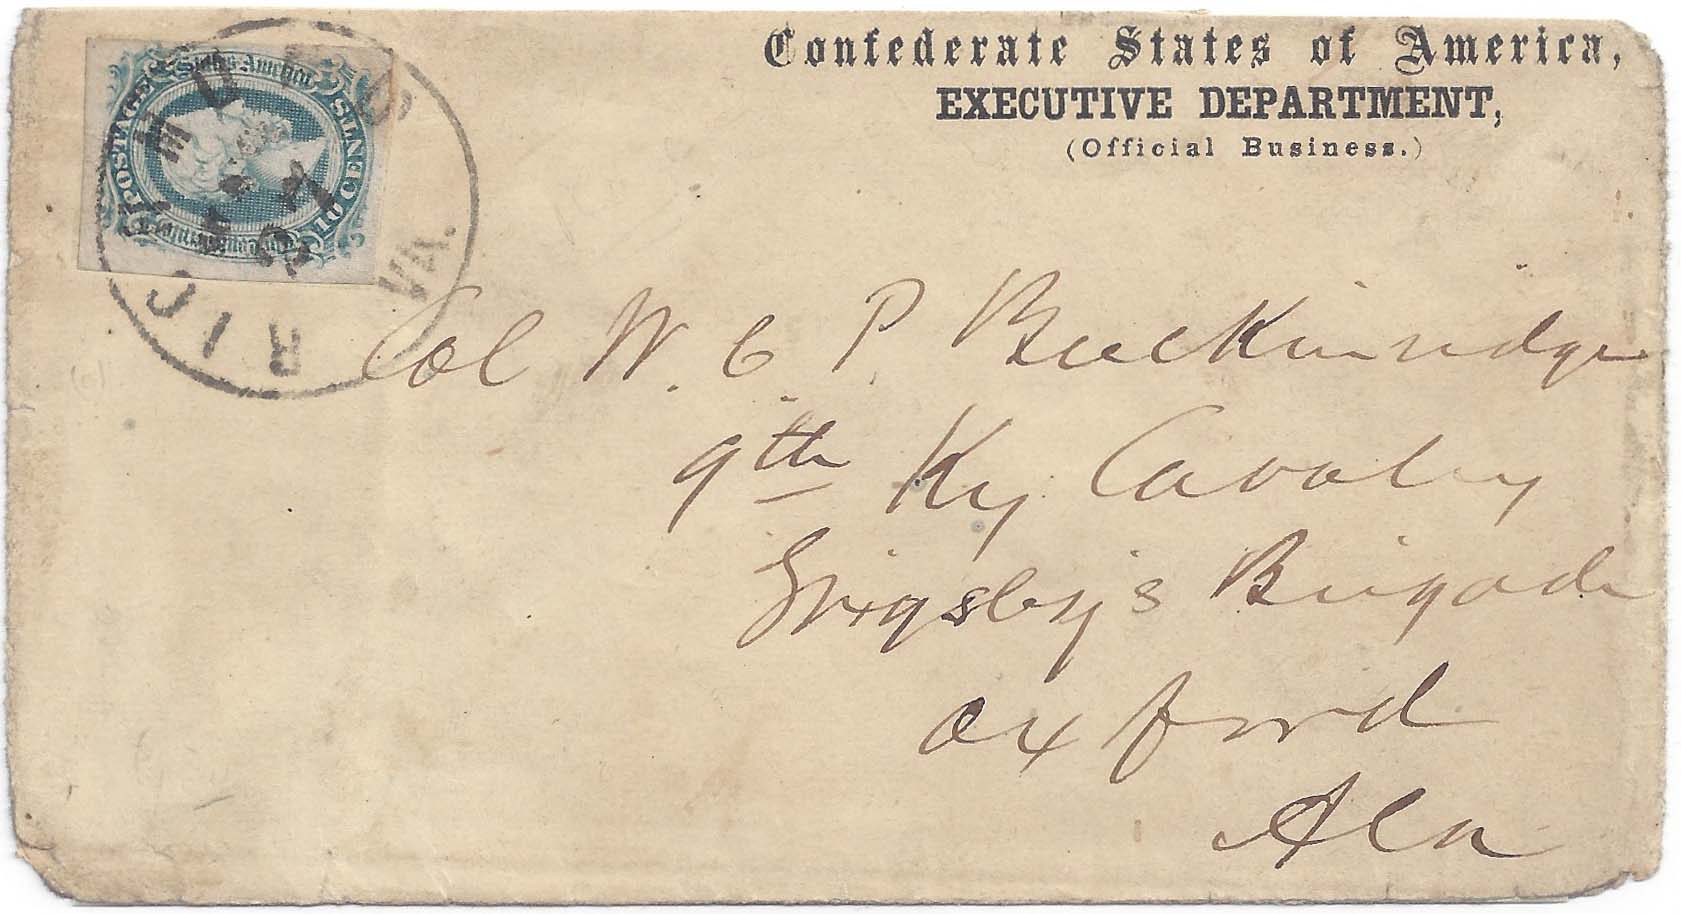 Confederate States of America,
EXECUTIVE DEPARTMENT,
(Official Business.)
POSTAGE
States America
TEN CENTS
RICHMOND
VA.
Col W. C P. Breckinridge
9th Ky Cavalry
Grigsby's Brigade
Oxford
Ala